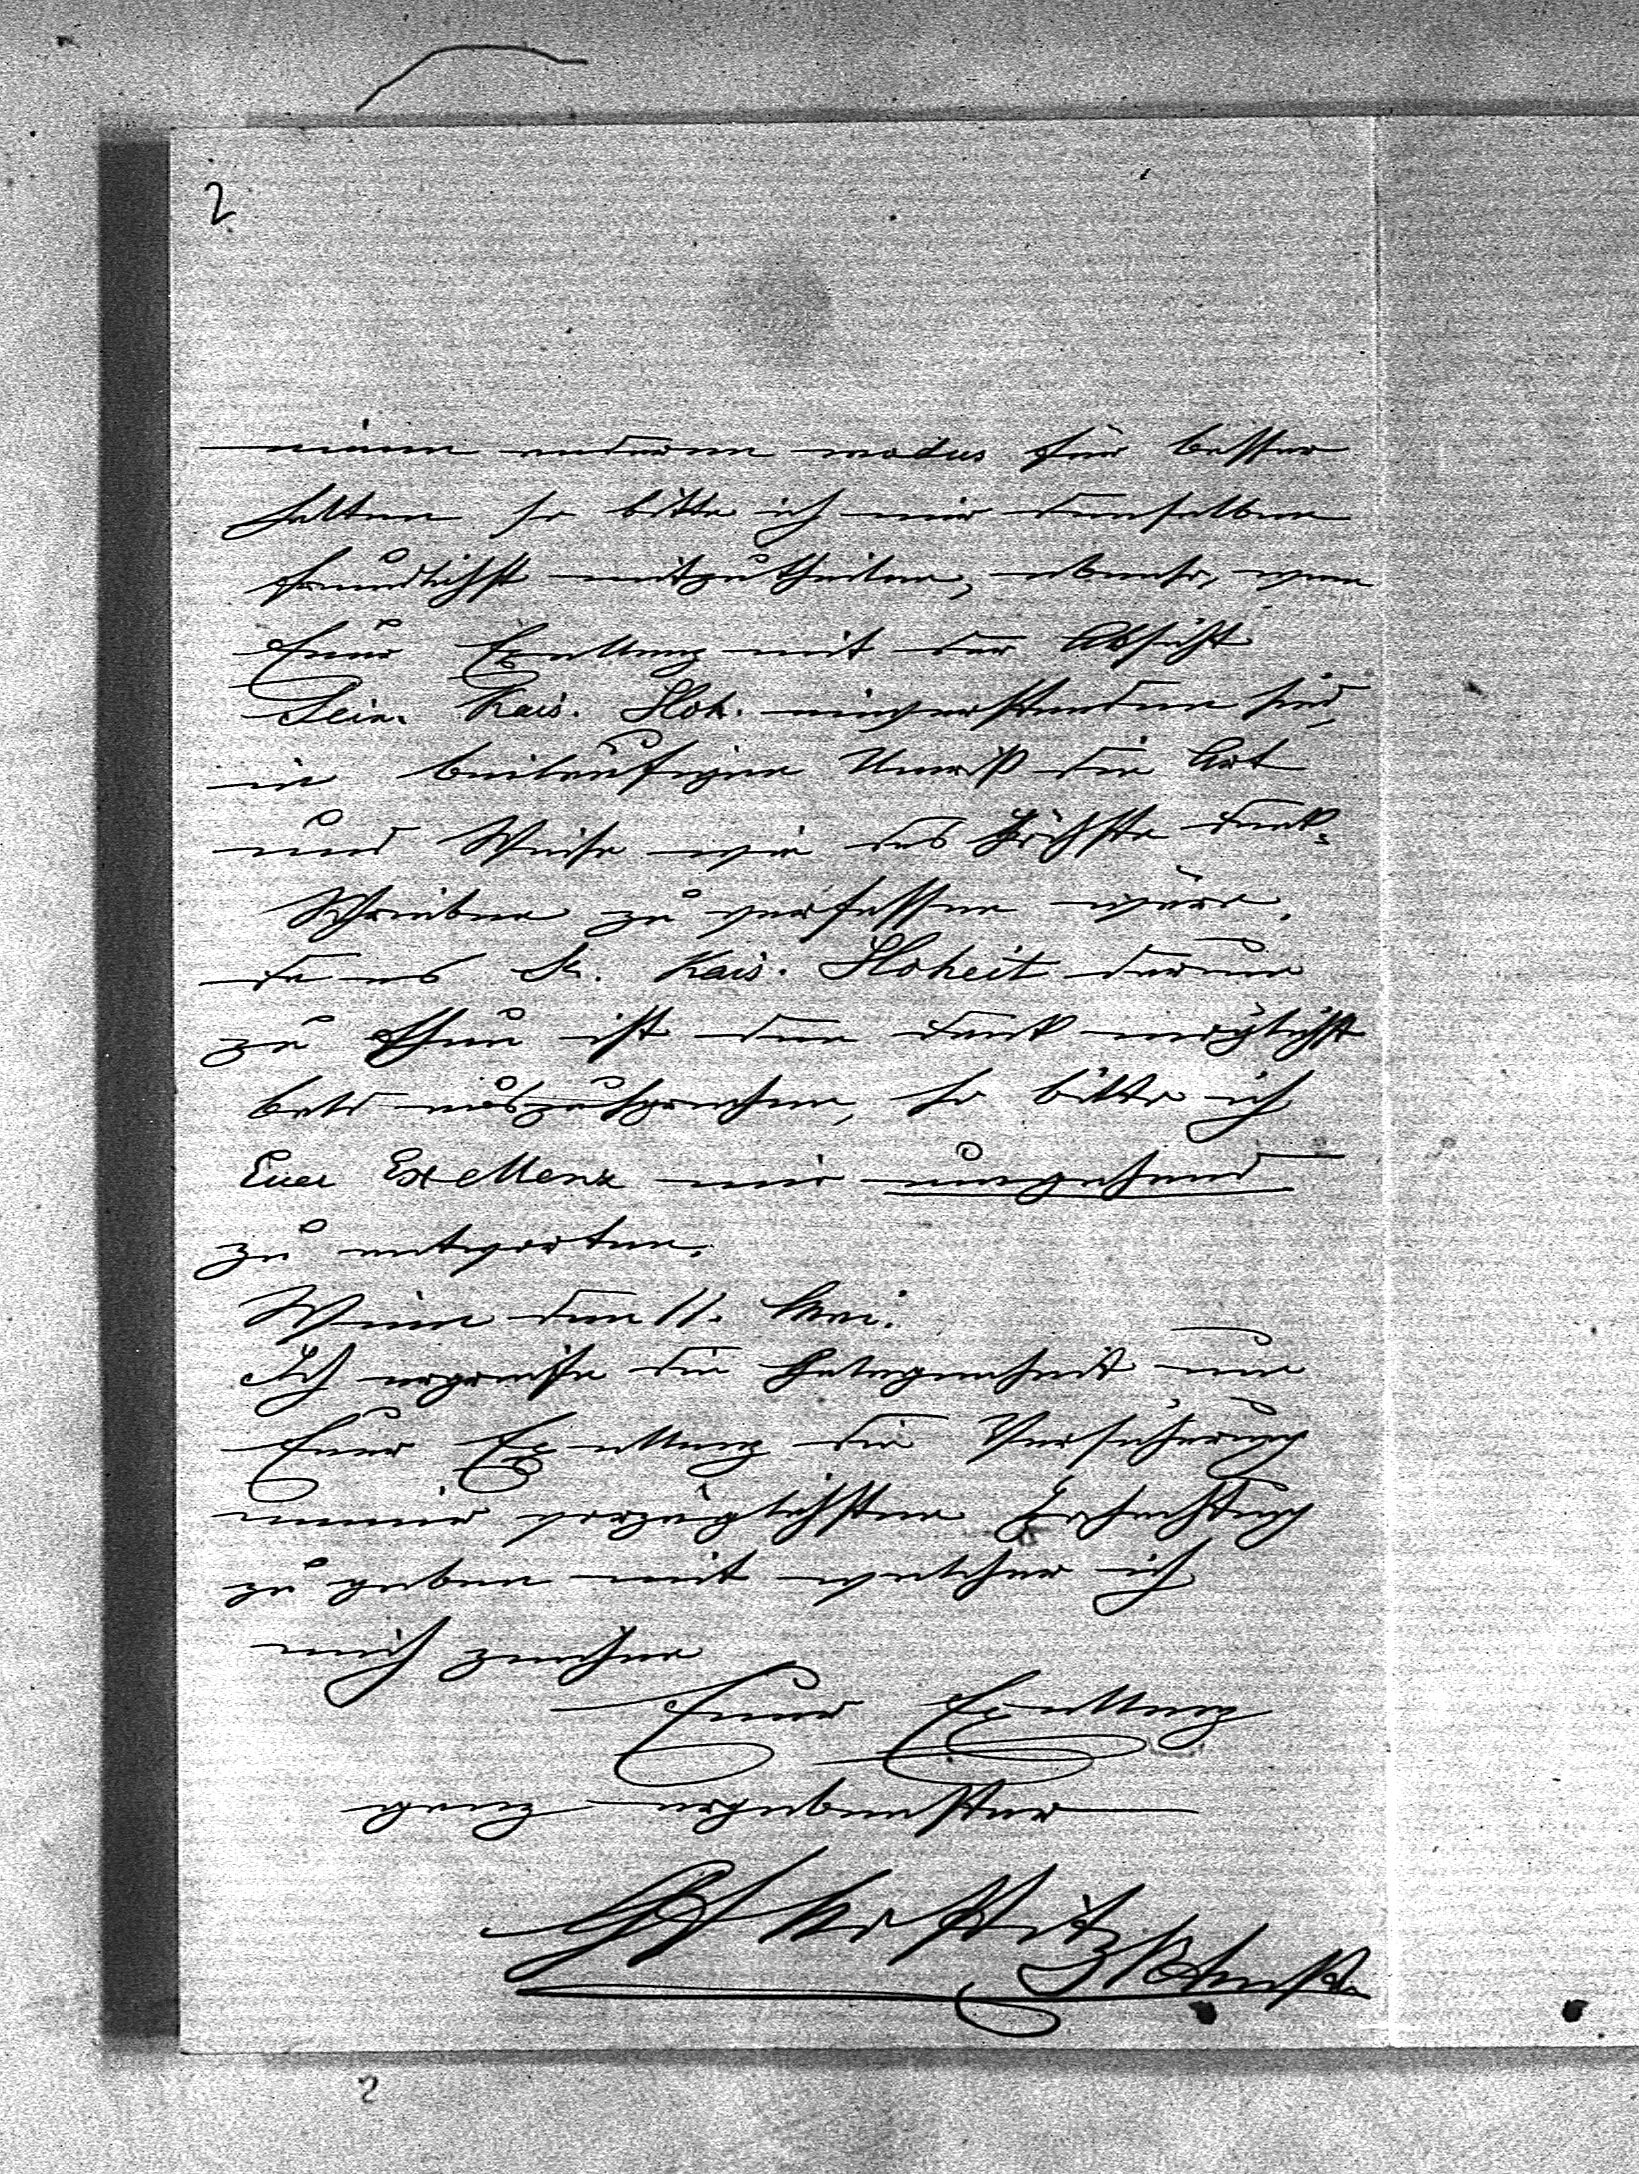 2
einen anderen modus für besser
halten so bitte ich mir denselben
freundlichst mitzutheilen, ebenso, wenn
Euer Exzellenz mit der Absicht
Sein. Kais. Hoh. einverstanden sind,
in beiläufigen Umriß die Art
und Weise wie das höchste Dank-
schreiben zu verfassen wäre.
Da es Sr. Kais. Hoheit darum
zu thun ist den Dank möglichst
bald auszusprechen, so bitte ich
Euer Exellenz mir umgehend
zu antworten.
Wien den 11. Mai.
Ich ergreife die Gelegenheit um
Euer Exzellenz die Versicherung
meiner vorzüglichsten Hochachtung
zu geben mit welcher ich
mich zeichne
Euer Exzellenz
ganz ergebenster
2